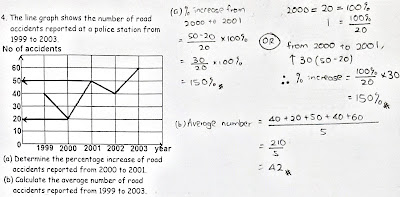 4. The line graph shows the number of road
accidents reported at a police station from
1999 to 2003.
No of accidents
60
50
40
30
20
10
0
1999 2000 2001 2002 2003 year
(a) Determine the percentage increase of road
accidents reported from 2000 to 2001.
(b) Calculate the average number of road
accidents reported from 1999 to 2003.
(a) % increase from
2000 to 2001
= 50-20/20 × 100%
= 30/20 × 100%
= 150%
OR
2000 = 20 = 100%
1 = 100%/20
from 2000 to 2001,
↑ 30 (50-20)
∴ % increase = 100%/20 × 30
= 150%
(b) Average number = 40+20+50+40+60/5
= 210/5
= 42